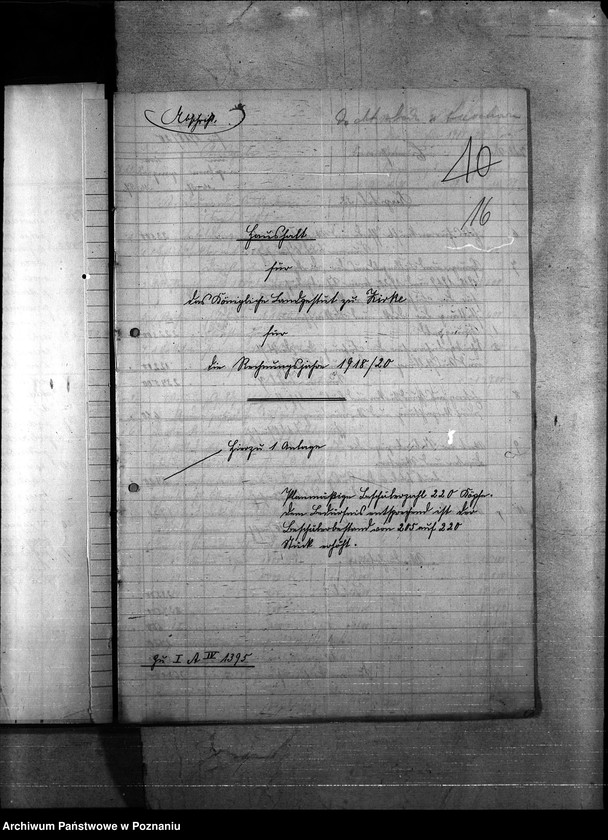 Abschrift.
10
16
Haushalt
für
das Königliche Landgestüt zu Zirke
für
die Rechnungsjahre 1918/20
Hierzu 1 Anlage
Planmäßige Beschälerzahl 220 Köpfe.
Dem Bedürfnis entsprechend ist der
Beschälerbestand von 205 auf 220
Stück erhöht.
Zu I A IV 1395
Archiwum Państwowe w Poznaniu